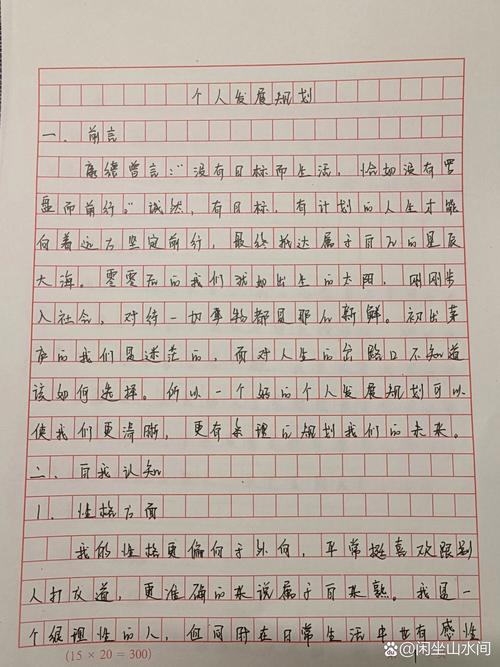 个人发展规划
一、前言
康德曾言：“没有目标而生活，恰如没有罗
盘而前行。”诚然，有目标，有计划的人生才能
向着远方坚定前行，最终抵达属于自己的星辰
大海。零零后的我们犹如出生的太阳，刚刚步
入社会，对待一切事物都是那么新鲜。初出茅
庐的我们是迷茫的，面对人生的岔路口不知道
该如何选择。所以一个好的个人发展规划可以
使我们更清晰，更有条理的规划我们的未来。
二、自我认知
1、性格方面
我的性格更偏向于外向，平常挺喜欢跟别
人打交道，更准确的来说属于自来熟。我是一
个很理性的人，但同时在日常生活中也有感性
(15 × 20 = 300)
Baidu百度 @闲坐山水间